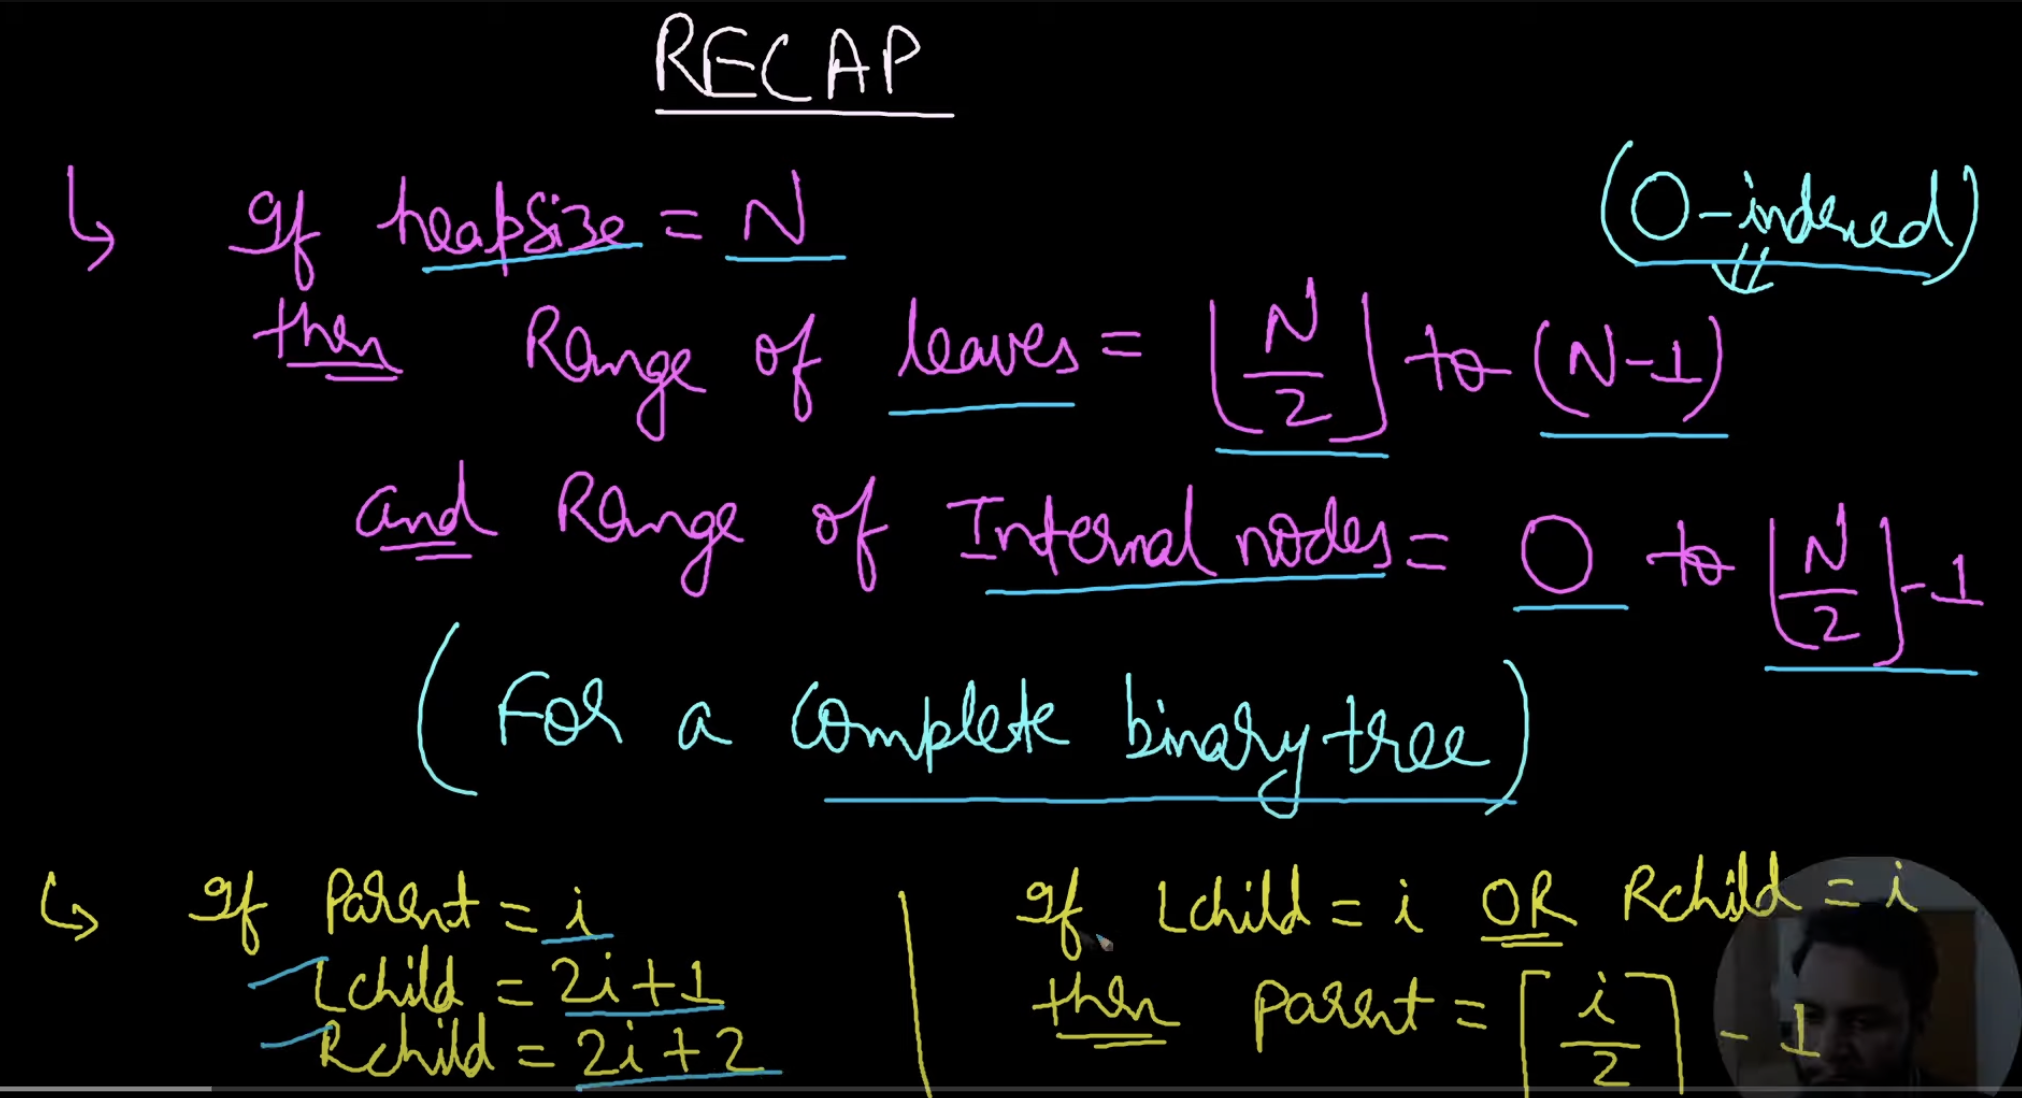 RECAP
(0-indexed)
↳ If heapsize = N
then Range of leaves = ⌊N/2⌋ to (N-1)
and Range of Internal nodes = 0 to ⌊N/2⌋-1
(For a complete binary tree)
↳ If Parent = i
Lchild = 2i+1
Rchild = 2i+2
If Lchild = i OR Rchild = i
then parent = ⌈i/2⌉ - 1